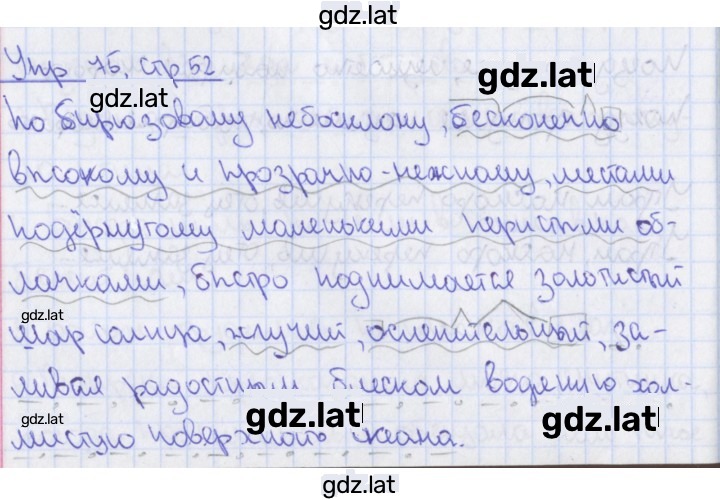 gdz.lat
Упр 75, стр 52
gdz.lat
gdz.lat
по бирюзовому небосклону, бесконечно
высокому и прозрачно-нежному, местами
подёрнутому маленькими перистыми об-
лачками, быстро поднимается золотистый
gdz.lat
шар солнца, жгучий, ослепительный, за-
ливая радостным блеском водяную хол-
gdz.lat
gdz.lat
gdz.lat
мистую поверхность океана.
gdz.lat